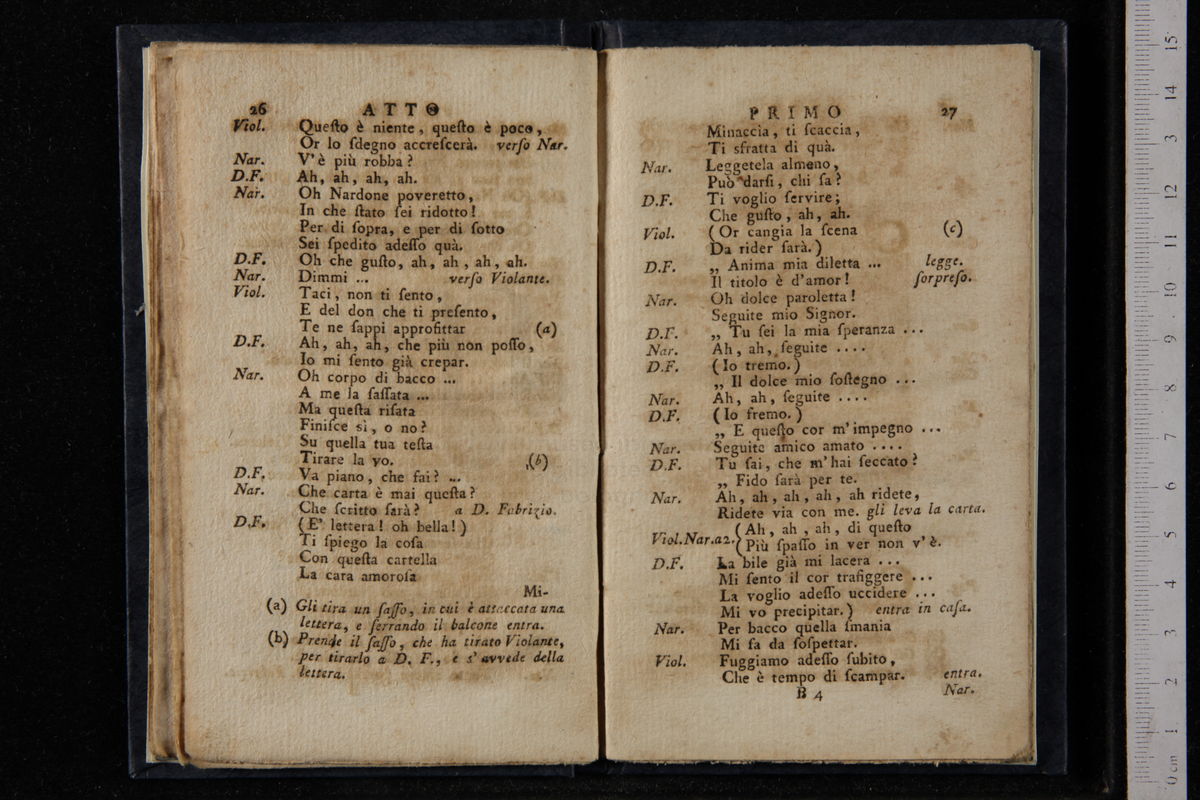 26 ATTO
Viol. Queſto è niente, queſto è poco,
Or lo ſdegno accreſcerà. verſo Nar.
Nar. V'è più robba?
D.F. Ah, ah, ah, ah.
Nar. Oh Nardone poveretto,
In che ſtato ſei ridotto!
Per di ſopra, e per di ſotto
Sei ſpedito adeſſo quà.
D.F. Oh che guſto, ah, ah, ah, ah.
Nar. Dimmi ... verſo Violante.
Viol. Taci, non ti ſento,
E del don che ti preſento,
Te ne ſappi approfittar (a)
D.F. Ah, ah, ah, che più non poſſo,
Io mi ſento già crepar.
Nar. Oh corpo di bacco ...
A me la ſaſſata ...
Ma queſta riſata
Finiſce sì, o no?
Su quella tua teſta
Tirare la vo. (b)
D.F. Va piano, che fai? ...
Nar. Che carta è mai queſta?
Che ſcritto ſarà? a D. Fabrizio.
D.F. (E' lettera! oh bella!)
Ti ſpiego la coſa
Con queſta cartella
La cara amoroſa
Mi-
(a) Gli tira un ſaſſo, in cui è attaccata una
lettera, e ſerrando il balcone entra.
(b) Prende il ſaſſo, che ha tirato Violante,
per tirarlo a D. F., e s'avvede della
lettera.
PRIMO 27
Minaccia, ti ſcaccia,
Ti sfratta di quà.
Nar. Leggetela almeno,
Può darſi, chi ſa?
D.F. Ti voglio ſervire;
Che guſto, ah, ah.
Viol. (Or cangia la ſcena (c)
Da rider ſarà.)
D.F. „ Anima mia diletta ... legge.
Il titolo è d'amor! ſorpreſo.
Nar. Oh dolce paroletta!
Seguite mio Signor.
D.F. „ Tu ſei la mia ſperanza ...
Nar. Ah, ah, ſeguite ....
D.F. (Io tremo.)
„ Il dolce mio ſoſtegno ...
Nar. Ah, ah, ſeguite ....
D.F. (Io fremo.)
„ E queſto cor m'impegno ...
Nar. Seguite amico amato ....
D.F. Tu ſai, che m'hai ſeccato?
„ Fido ſarà per te.
Nar. Ah, ah, ah, ah, ah ridete,
Ridete via con me. gli leva la carta.
Viol.Nar.a2. (Ah, ah, ah, di queſto
(Più ſpaſſo in ver non v'è.
D.F. La bile già mi lacera ...
Mi ſento il cor trafiggere ...
La voglio adeſſo uccidere ...
Mi vo precipitar.) entra in caſa.
Nar. Per bacco quella ſmania
Mi fa da ſoſpettar.
Viol. Fuggiamo adeſſo ſubito,
Che è tempo di ſcampar. entra.
B 4 Nar.
0 cm 1 2 3 4 5 6 7 8 9 10 11 12 13 14 15